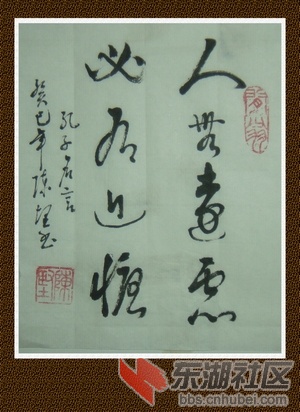 人無遠慮
必有近憂
孔子名言
癸巳年陳理書
东湖社区
bbs.cnhubei.com